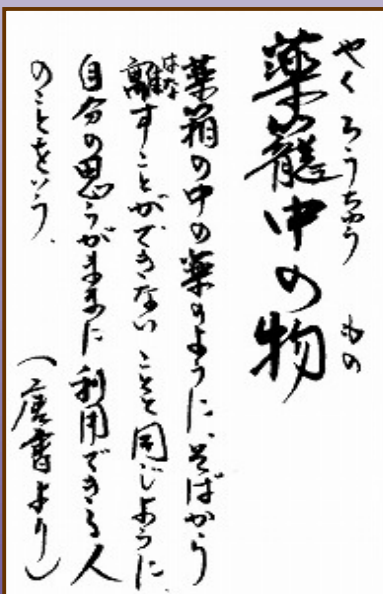 やくろうちゅう もの
薬籠中の物
薬箱の中の薬のように、そばから
はな
離すことができないことと同じように
自分の思うがままに利用できる人
のことをいう。
(唐書より)